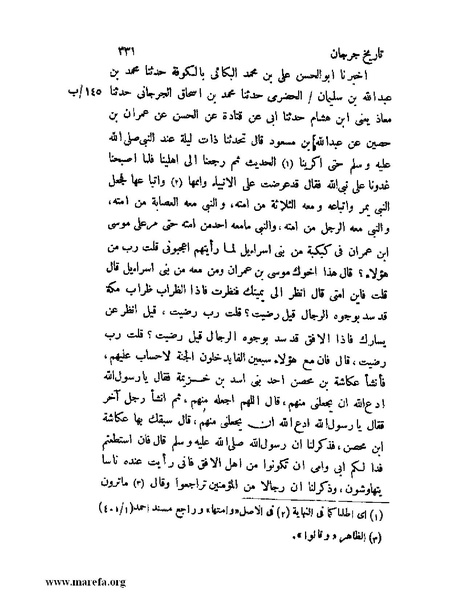 تاريخ جرجان ٣٣١
اخبرنا ابو الحسن على بن محمد البكائى بالكوفة حدثنا محمد بن
عبد الله بن سليمان / الحضرمى حدثنا محمد بن اسحاق الجرجانى حدثنا ١٤٥/ب
معاذ يعنى ابن هشام حدثنا ابى عن قتادة عن الحسن عن عمران بن
حصين عن عبد الله بن مسعود قال تحدثنا ذات ليلة عند النبى صلى الله
عليه وسلم حتى اكرينا (١) الحديث ثم رجعنا الى اهلينا فلما اصبحنا
غدونا على نبى الله فقال قد عرضت على الانبياء وانمها (٢) واتباعها فجعل
النبى يمر واتباعه ومعه الثلاثة من امته، والنبى معه العصابة من امته،
والنبى معه الرجل من امته، والنبى ما معه احد من امته حتى مر على موسى
ابن عمران فى كبكبة من بنى اسراءيل لما رأيتهم اعجبونى قلت رب من
هؤلاء؟ قال هذا اخوك موسى بن عمران ومن معه من بنى اسراءيل قال
قلت فاين امتى قال انظر الى يمينك فنظرت فاذا الظراب ظراب مكة
قد سد بوجوه الرجال قيل رضيت؟ قلت رب رضيت، قيل انظر عن
يسارك فاذا الافق قد سد بوجوه الرجال قيل رضيت؟ قلت رب
رضيت، قال فان مع هؤلاء سبعين الفا يدخلون الجنة لا حساب عليهم،
فأنشأ عكاشة بن محصن احد بنى اسد بن خزيمة فقال يا رسول الله
ادع الله ان يجعلنى منهم، قال اللهم اجعله منهم، ثم انشأ رجل آخر
فقال يا رسول الله ادع الله ان يجعلنى منهم، قال سبقك بها عكاشة
ابن محصن، فذكر لنا ان رسول الله صلى الله عليه وسلم قال فان استطعتم
فدا لكم ابى وامى ان تكونوا من اهل الافق فانى رأيت عنده ناسا
يتهاوشون، وذكر لنا ان رجالا من المؤمنين تراجعوا وقال (٣) ماترون
(١) اى اطلنا كما فى النهاية (٢) فى الاصل «وامتها» وراجع مسند احمد (١/٤٠١)
(٣) الظاهر «وقالوا».
www.marefa.org